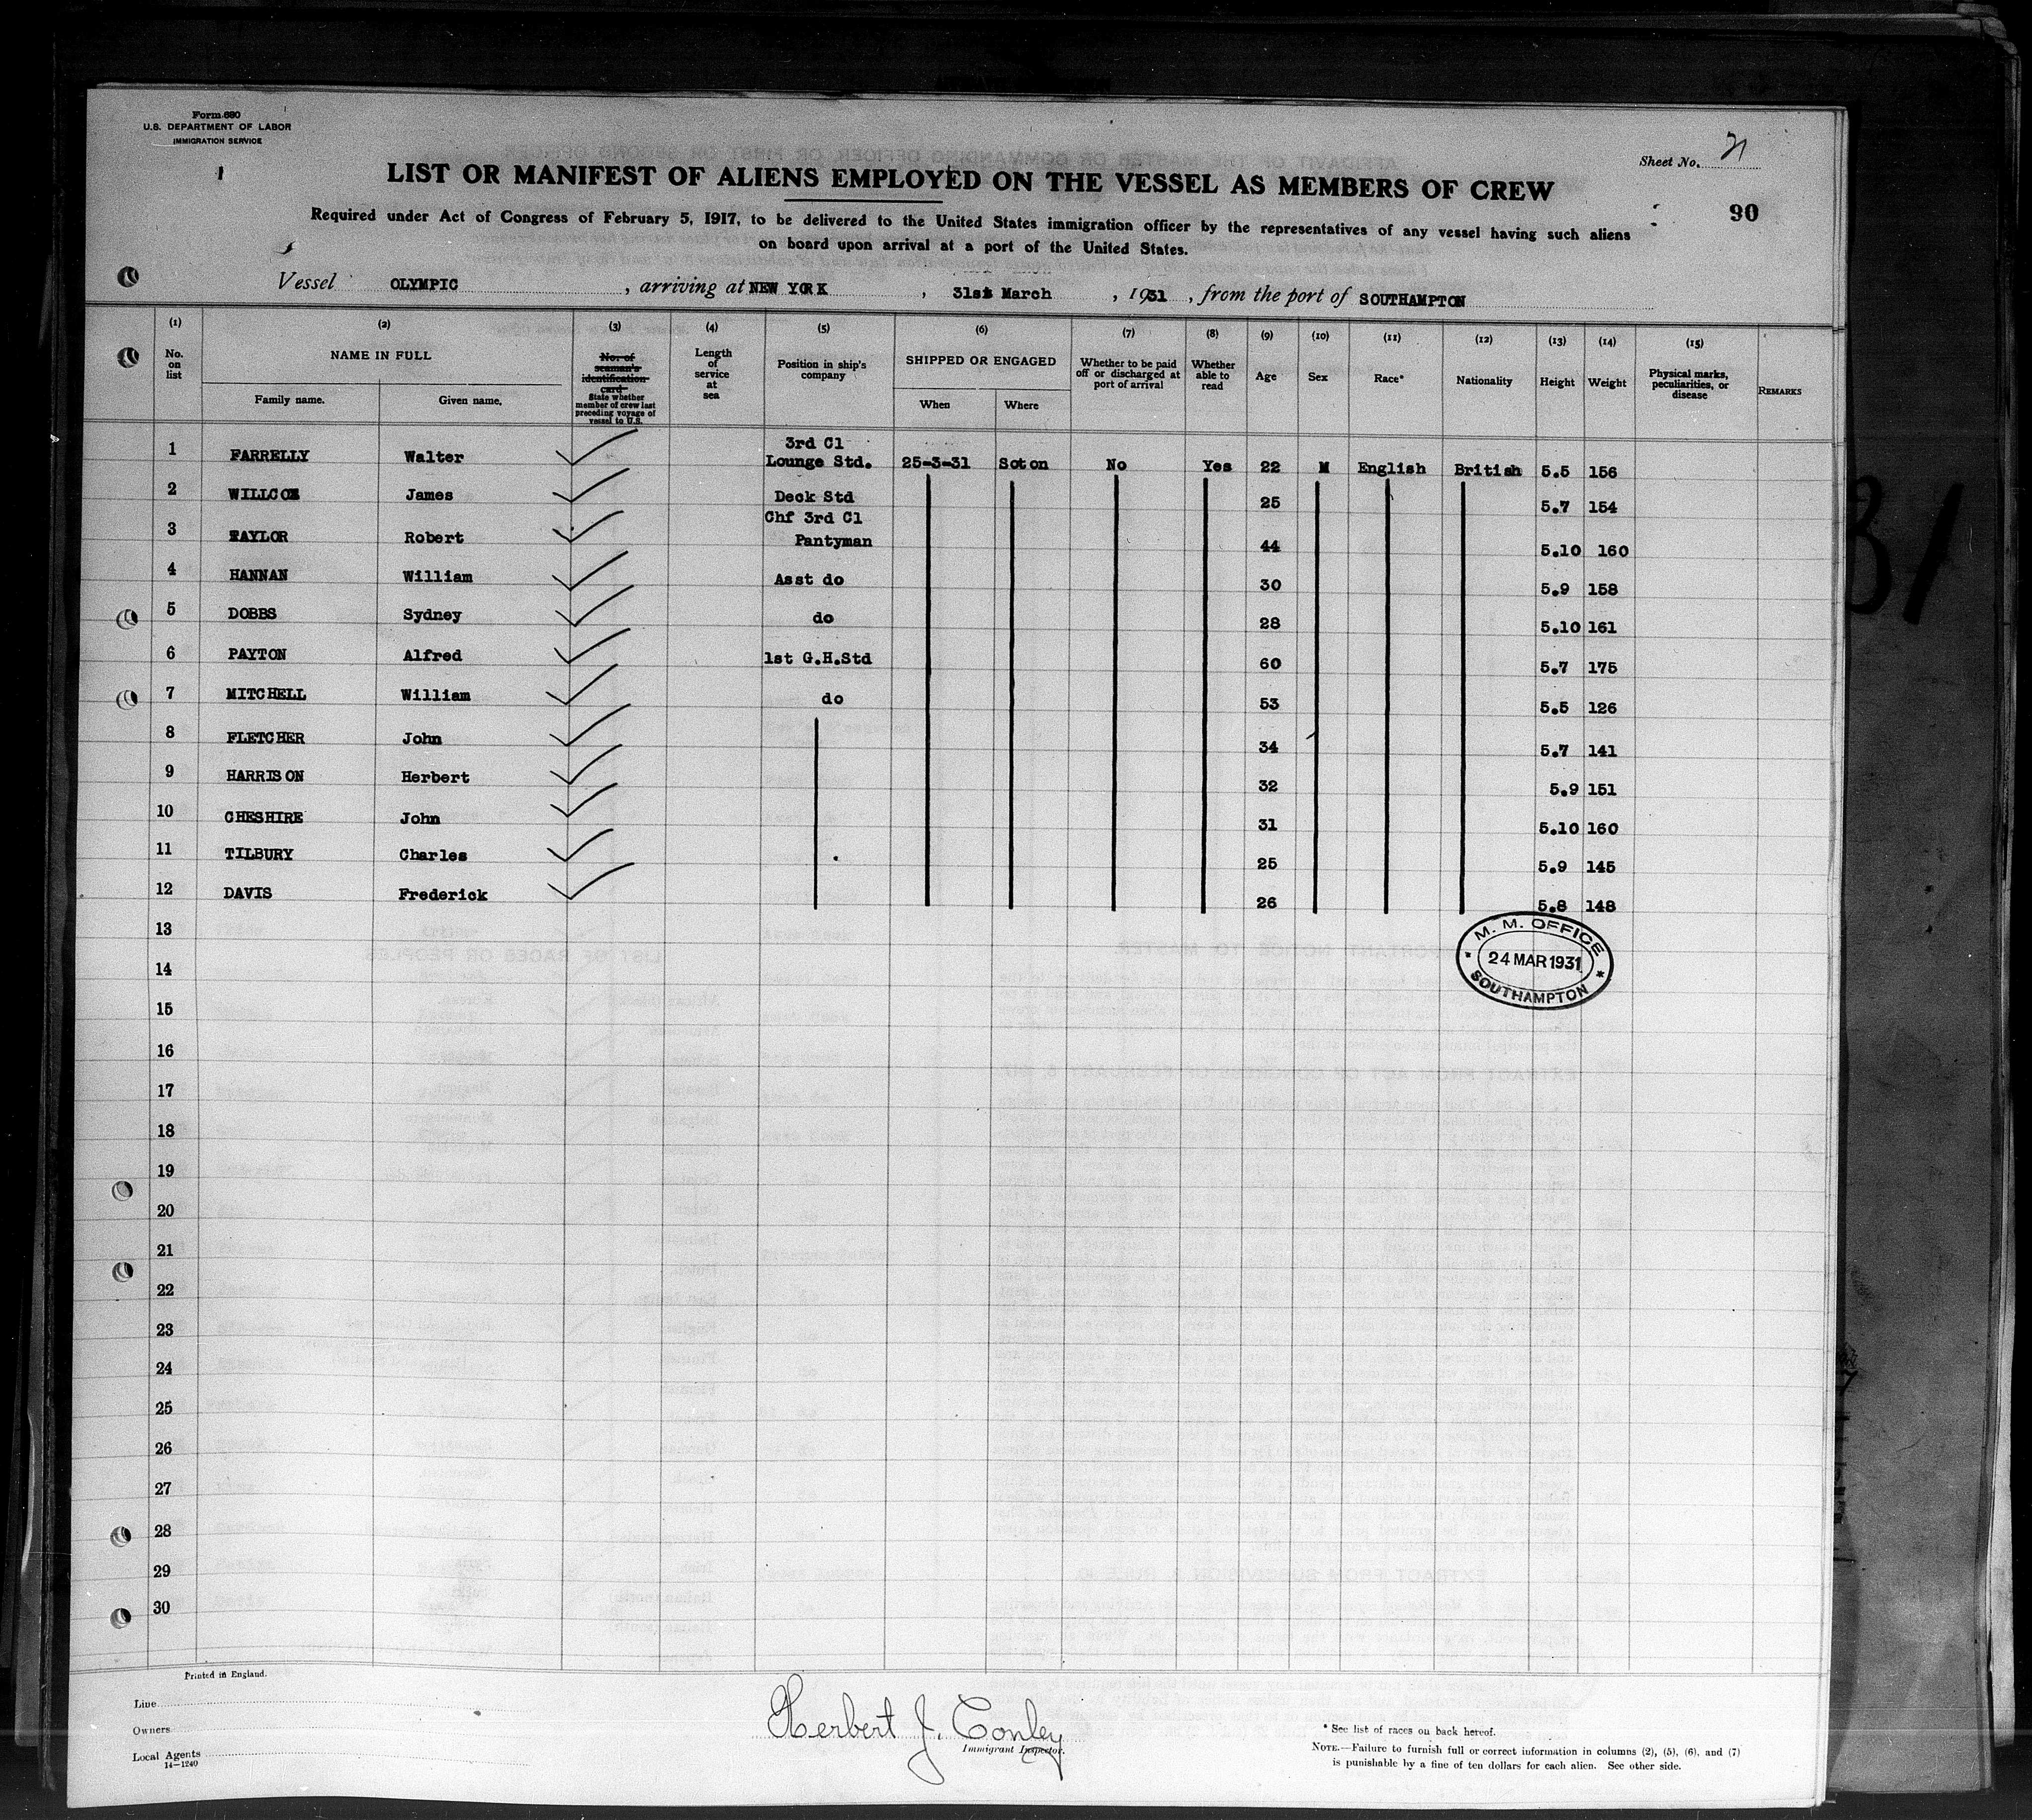 Form 680
U.S. DEPARTMENT OF LABOR
IMMIGRATION SERVICE
Sheet No. 21
LIST OR MANIFEST OF ALIENS EMPLOYED ON THE VESSEL AS MEMBERS OF CREW
90
Required under Act of Congress of February 5, 1917, to be delivered to the United States immigration officer by the representatives of any vessel having such aliens
on board upon arrival at a port of the United States.
Vessel OLYMPIC, arriving at NEW YORK, 31st March, 1931, from the port of SOUTHAMPTON
(1) (2) (3) (4) (5) (6) (7) (8) (9) (10) (11) (12) (13) (14) (15)
No. on list
NAME IN FULL
Family name. Given name.
No. of seaman's identification card
State whether member of crew last preceding voyage of vessel to U.S.
Length of service at sea
Position in ship's company
SHIPPED OR ENGAGED
When Where
Whether to be paid off or discharged at port of arrival
Whether able to read
Age
Sex
Race*
Nationality
Height
Weight
Physical marks, peculiarities, or disease
REMARKS
1 FARRELLY Walter 3rd Cl Lounge Std. 25-3-31 Soton No Yes 22 M English British 5.5 156
2 WILLCOX James Deck Std 25 5.7 154
3 TAYLOR Robert Chf 3rd Cl Pantyman 44 5.10 160
4 HANNAN William Asst do 30 5.9 158
5 DOBBS Sydney do 28 5.10 161
6 PAYTON Alfred 1st G.H.Std 60 5.7 175
7 MITCHELL William do 53 5.5 126
8 FLETCHER John 34 5.7 141
9 HARRISON Herbert 32 5.9 151
10 CHESHIRE John 31 5.10 160
11 TILBURY Charles 25 5.9 145
12 DAVIS Frederick 26 5.8 148
13
M. M. OFFICE
24 MAR 1931
SOUTHAMPTON
14
15
16
17
18
19
20
21
22
23
24
25
26
27
28
29
30
Printed in England.
Line
Owners
Local Agents
14—1240
Herbert J. Conley
Immigrant Inspector.
* See list of races on back hereof.
NOTE.—Failure to furnish full or correct information in columns (2), (5), (6), and (7)
is punishable by a fine of ten dollars for each alien. See other side.
31